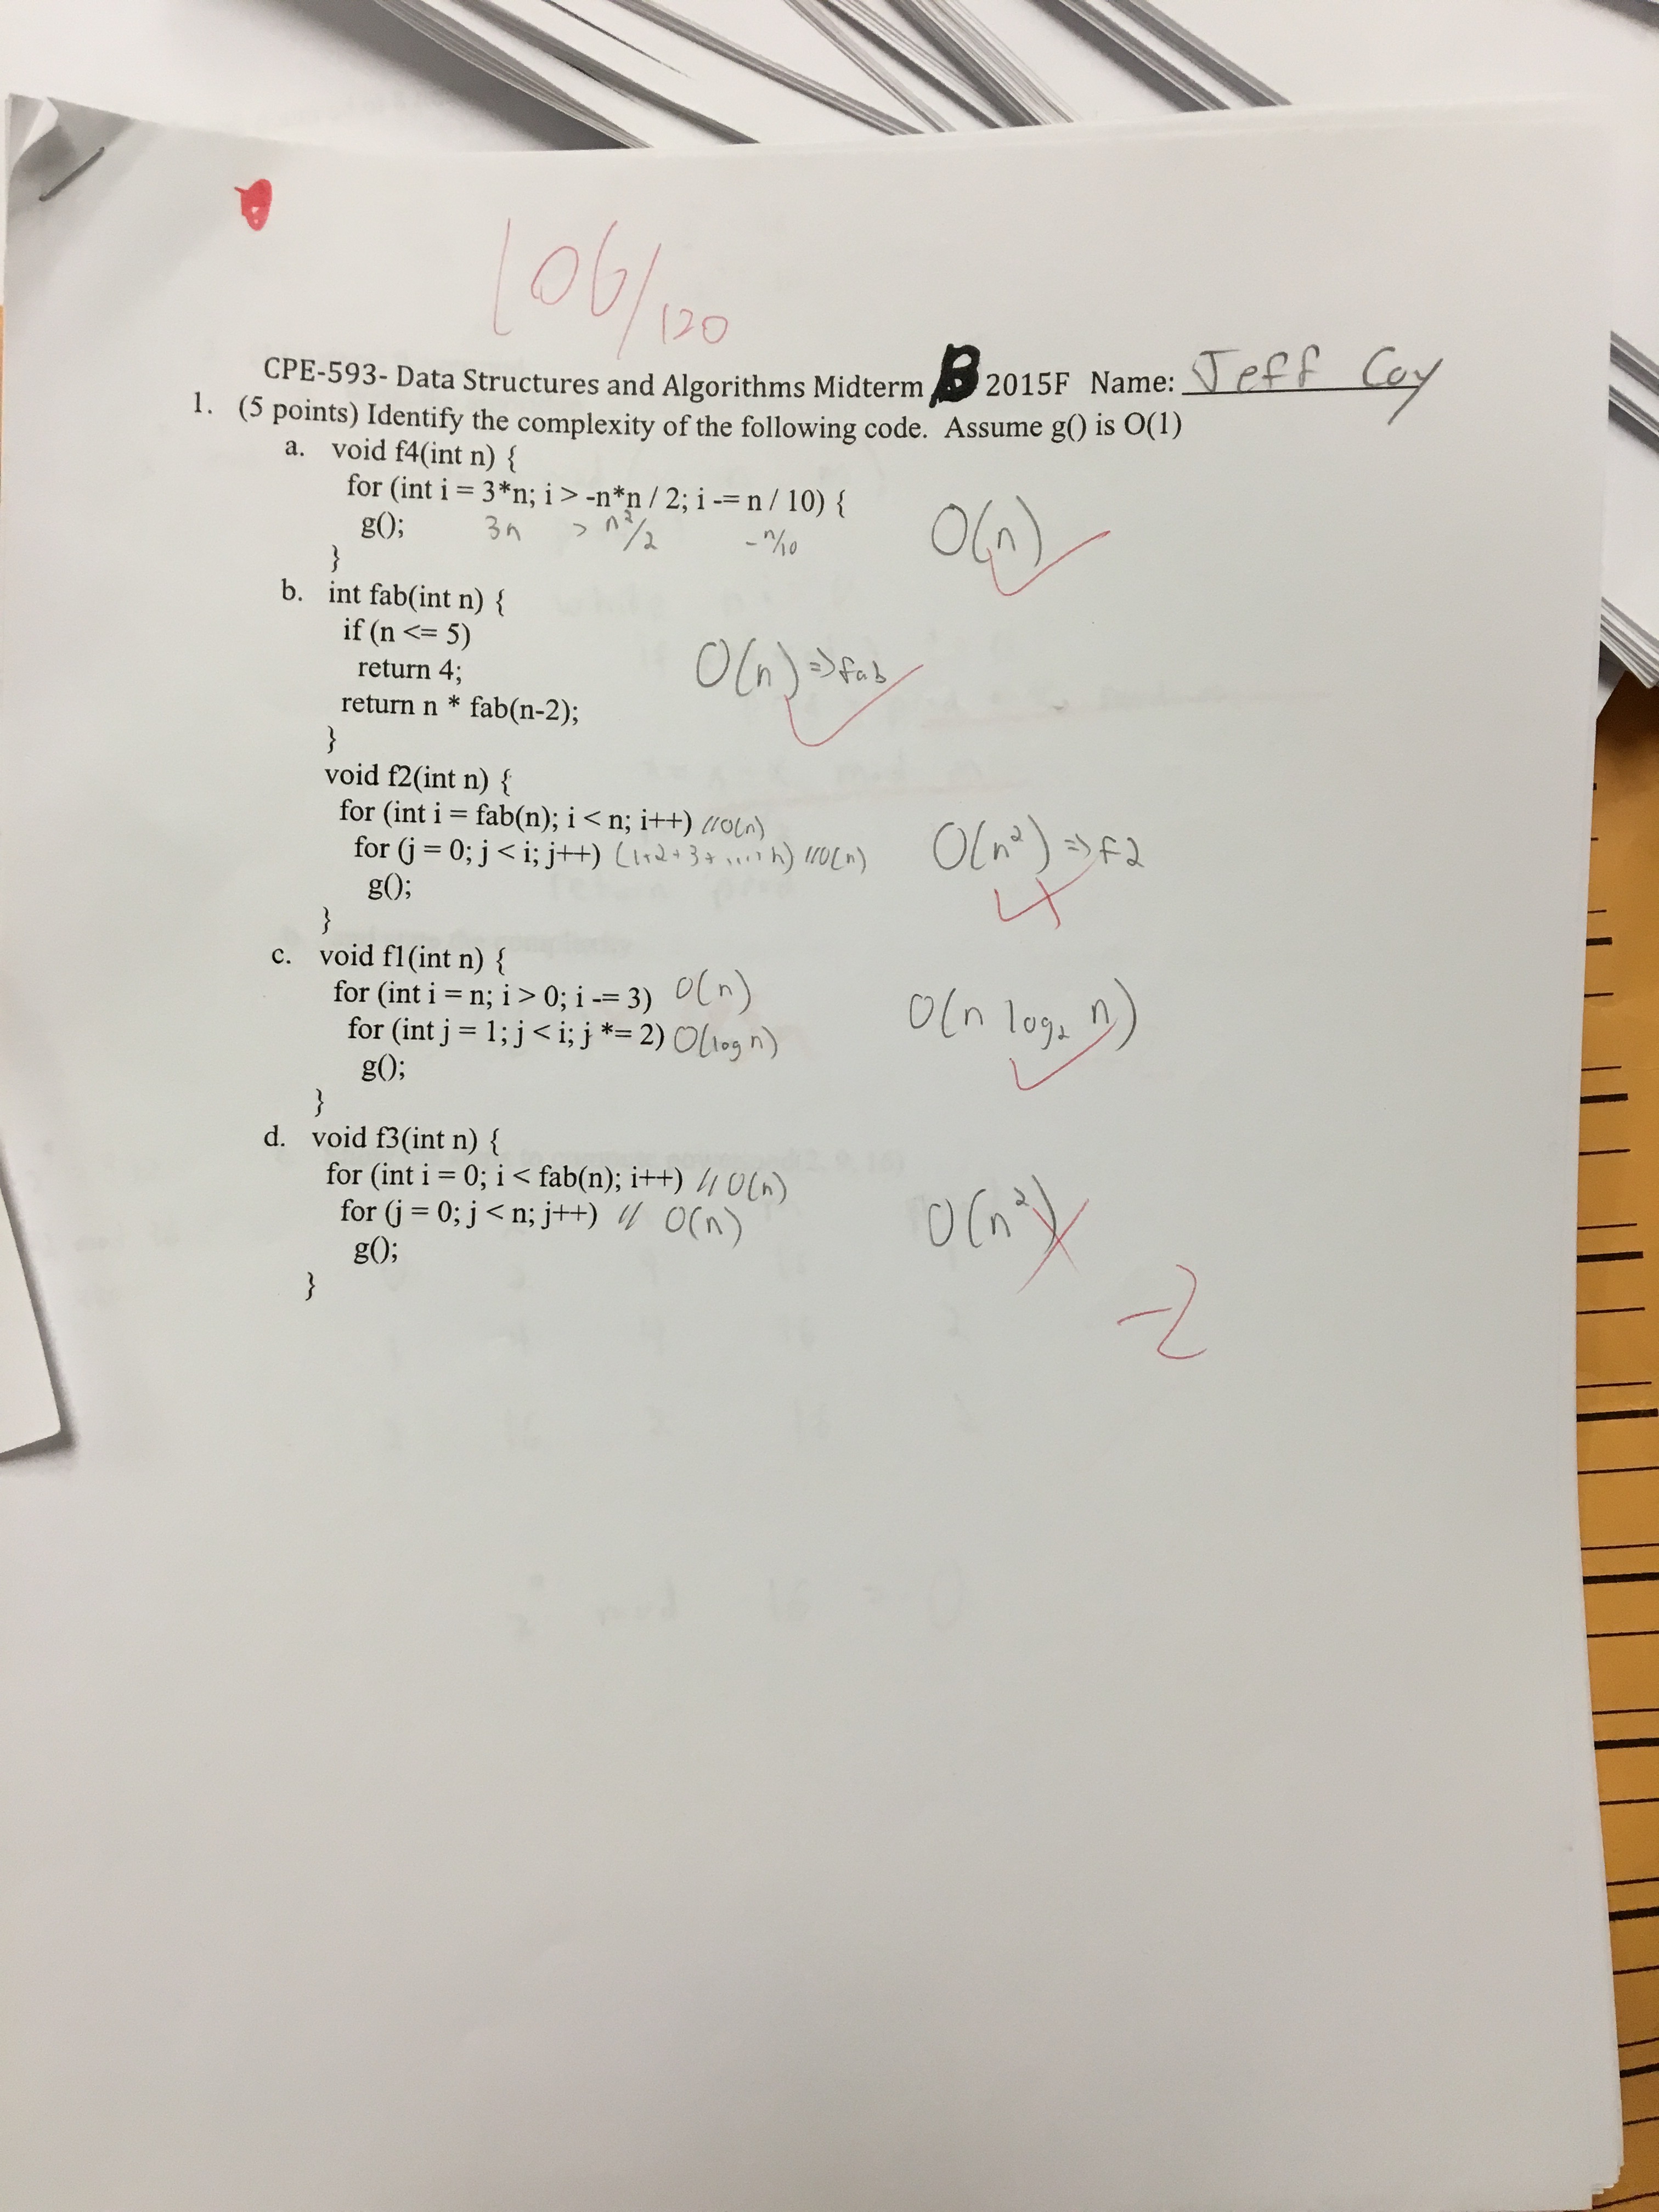 106/120
CPE-593- Data Structures and Algorithms Midterm B 2015F Name: Jeff Coy
1. (5 points) Identify the complexity of the following code. Assume g() is O(1)
a. void f4(int n) {
for (int i = 3*n; i > -n*n / 2; i -= n / 10) {
g(); 3n > n²/2 -n/10 O(n)
}
b. int fab(int n) {
if (n <= 5)
return 4; O(n) => fab
return n * fab(n-2);
}
void f2(int n) {
for (int i = fab(n); i < n; i++) //O(n)
for (j = 0; j < i; j++) (1+2+3+....+n) //O(n) O(n²) => f2
g();
}
c. void f1(int n) {
for (int i = n; i > 0; i -= 3) O(n) O(n log₂ n)
for (int j = 1; j < i; j *= 2) O(log n)
g();
}
d. void f3(int n) {
for (int i = 0; i < fab(n); i++) // O(n)
for (j = 0; j < n; j++) // O(n) O(n²)
g();
}
-2